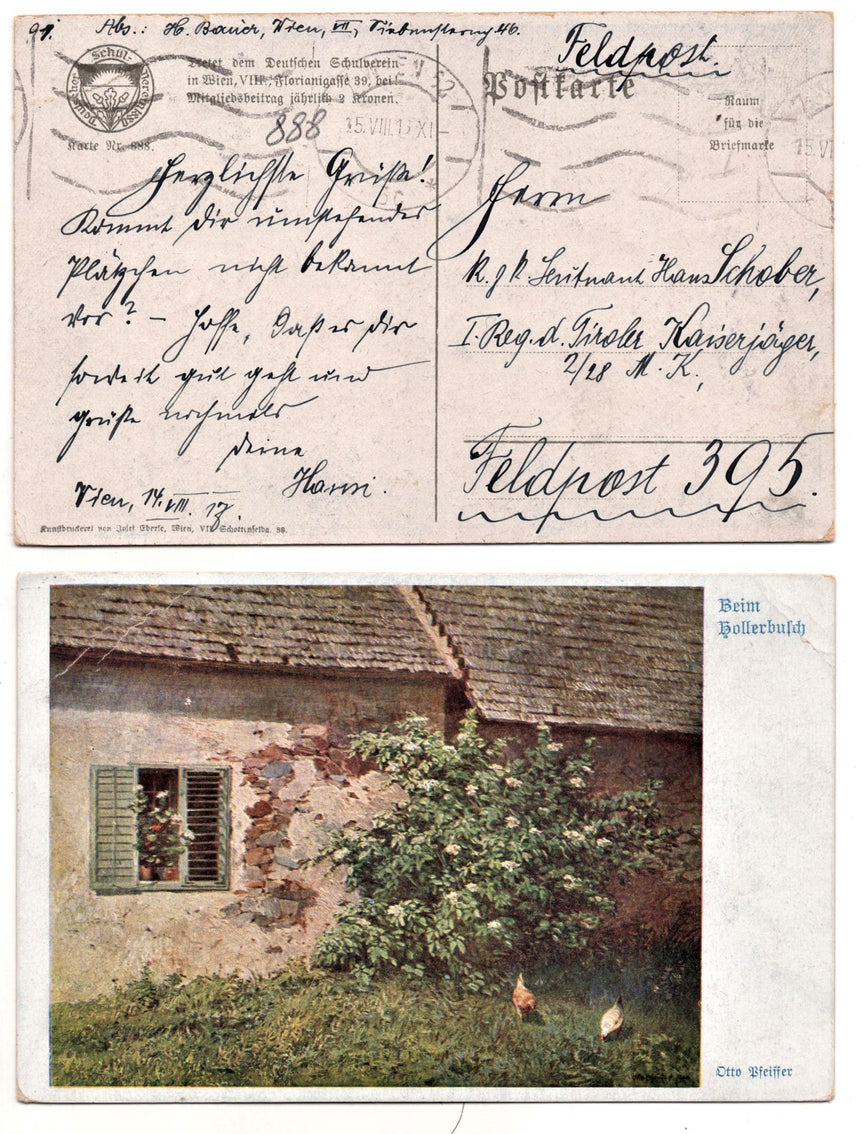 91. Abs.: H. Bauer, Wien, VII, Siebensterng 46.
Schul-
Deutscher
vereinsst
Tretet dem Deutschen Schulverein
in Wien, VIII., Florianigasse 39, bei
Mitgliedsbeitrag jährlich 2 Kronen.
Karte Nr. 888.
888
15.VIII.17 XI
Feldpost.
Postkarte
Raum
für die
Briefmarke
Herzlichste Grüße!
Kommt dir umstehendes
Plätzchen nicht bekannt
vor? – Hoffe, daß es dir
soweit gut geht und
grüße nochmals
deine
Hansi.
Wien, 14. VIII. 17.
Kunstdruckerei von Josef Eberle, Wien, VII. Schottenfeldg. 38.
Herrn
k. u. k. Leutnant Hans Schober,
I. Reg. d. Tiroler Kaiserjäger,
2/28 M. K.,
Feldpost 395.
Beim
Hollerbusch
Otto Pfeiffer